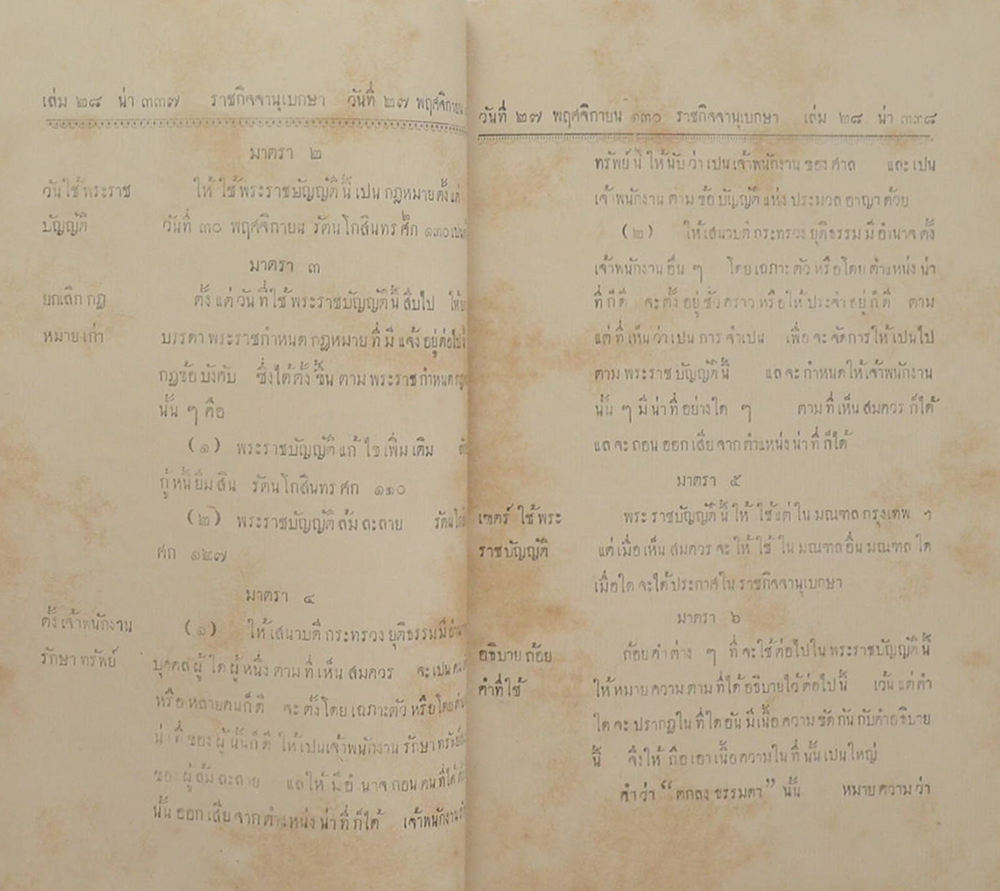 เล่ม ๒๘ น่า ๓๓๗ ราชกิจจานุเบกษา วันที่ ๒๗ พฤศจิกายน
มาตรา ๒
วันใช้พระราช
บัญญัติ
ให้ใช้พระราชบัญญัตินี้เปนกฎหมายตั้งแต่
วันที่ ๓๐ พฤศจิกายน รัตนโกสินทรศก ๑๓๐
มาตรา ๓
ยกเลิกกฎ
หมายเก่า
ตั้งแต่วันที่ใช้พระราชบัญญัตินี้สืบไป
บรรดาพระราชกำหนดกฎหมายที่มีแจ้งอยู่ต่อไป
กฎข้อบังคับ ซึ่งได้ตั้งขึ้นตามพระราชกำหนด
นั้น ๆ คือ
(๑) พระราชบัญญัติแก้ไขเพิ่มเติม
กู้หนี้ยืมสิน รัตนโกสินทรศก ๑๑๐
(๒) พระราชบัญญัติล้มละลาย
ศก ๑๒๗
มาตรา ๔
ตั้งเจ้าพนักงาน
รักษาทรัพย์
(๑) ให้เสนาบดีกระทรวงยุติธรรมมี
บุคคลผู้ใดผู้หนึ่งตามที่เห็นสมควร จะเปน
หรือหลายคนก็ดี จะตั้งโดยเฉภาะตัวหรือโดย
น่าที่ของผู้นั้นก็ดี ให้เปนเจ้าพนักงานรักษาทรัพย์
ของผู้ล้มละลาย แลให้มีอำนาจถอนคนที่ได้
นั้นออกเสียจากตำแหน่งน่าที่ก็ได้ เจ้าพนักงาน
วันที่ ๒๗ พฤศจิกายน ๑๓๐ ราชกิจจานุเบกษา เล่ม ๒๘ น่า ๓๓๘
ทรัพย์นี้ให้นับว่าเปนเจ้าพนักงานของศาล และเปน
เจ้าพนักงานตามข้อบัญญัติแห่งประมวลอาญาด้วย
(๒) ให้เสนาบดีกระทรวงยุติธรรมมีอำนาจตั้ง
เจ้าพนักงานอื่น ๆ โดยเฉภาะตัวหรือโดยตำแหน่งน่า
ที่ก็ดี จะตั้งอยู่ชั่วคราวหรือให้ประจำอยู่ก็ดี ตาม
แต่ที่เห็นว่าเปนการจำเปน เพื่อจะจัดการให้เปนไป
ตามพระราชบัญญัตินี้ แลจะกำหนดให้เจ้าพนักงาน
นั้น ๆ มีน่าที่อย่างใด ๆ ตามที่เห็นสมควรก็ได้
แลจะถอนออกเสียจากตำแหน่งน่าที่ก็ได้
มาตรา ๕
เขตร์ใช้พระ
ราชบัญญัติ
พระราชบัญญัตินี้ให้ใช้แต่ในมณฑลกรุงเทพ ฯ
แต่เมื่อเห็นสมควรจะให้ใช้ในมณฑลอื่นมณฑลใด
เมื่อใดจะได้ประกาศในราชกิจจานุเบกษา
มาตรา ๖
อธิบายถ้อย
คำที่ใช้
ถ้อยคำต่าง ๆ ที่จะใช้ต่อไปในพระราชบัญญัตินี้
ให้หมายความตามที่ได้อธิบายไว้ต่อไปนี้ เว้นแต่คำ
ใดจะปรากฏในที่ใดอันมีเนื้อความขัดกันกับคำอธิบาย
นี้ จึงให้ถือเอาเนื้อความในที่นั้นเปนใหญ่
คำว่า “ตกลงธรรมดา” นั้น หมายความว่า